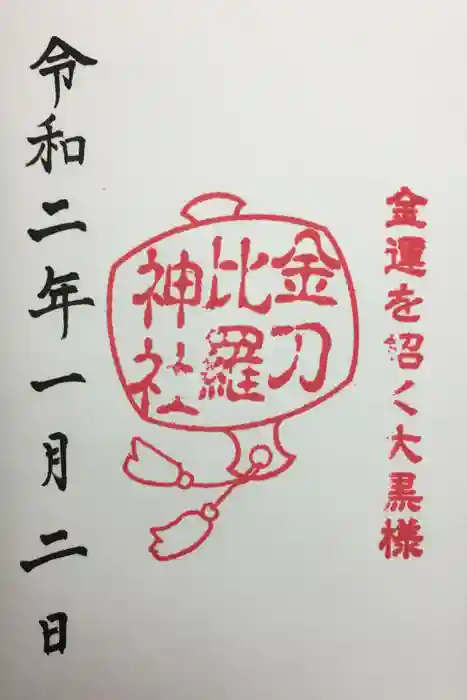 金運を招く大黒様
金刀
比羅
神社
令和二年一月二日